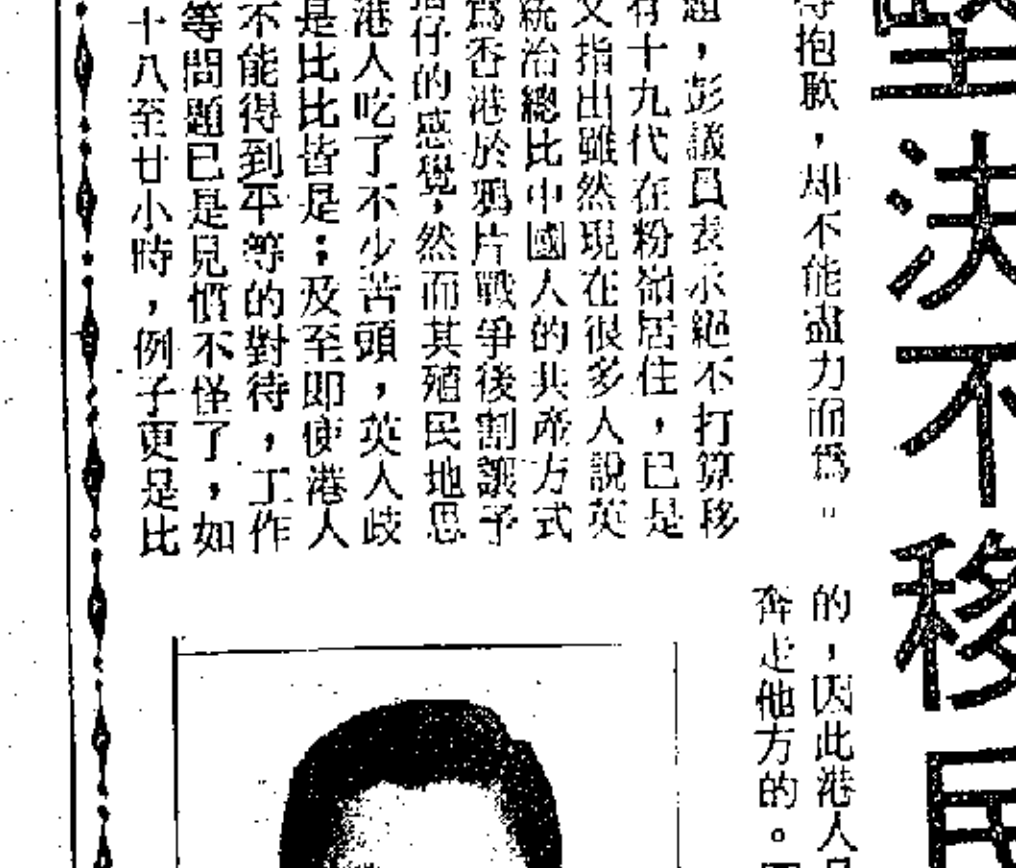 堅決不移民
得抱歉，却不能盡力而爲。
的，因此港人
奔走他方的。
題，彭議員表示絕不打算移
有十九代在粉嶺居住，已是
又指出雖然現在很多人說英
統治總比中國人的共產方式
爲香港於鴉片戰爭後割讓予
仔的感覺，然而其殖民地思
港人吃了不少苦頭，英人歧
是比比皆是；及至即使港人
不能得到平等的對待，工作
等問題已是見慣不怪了，如
十八至廿小時，例子更是比